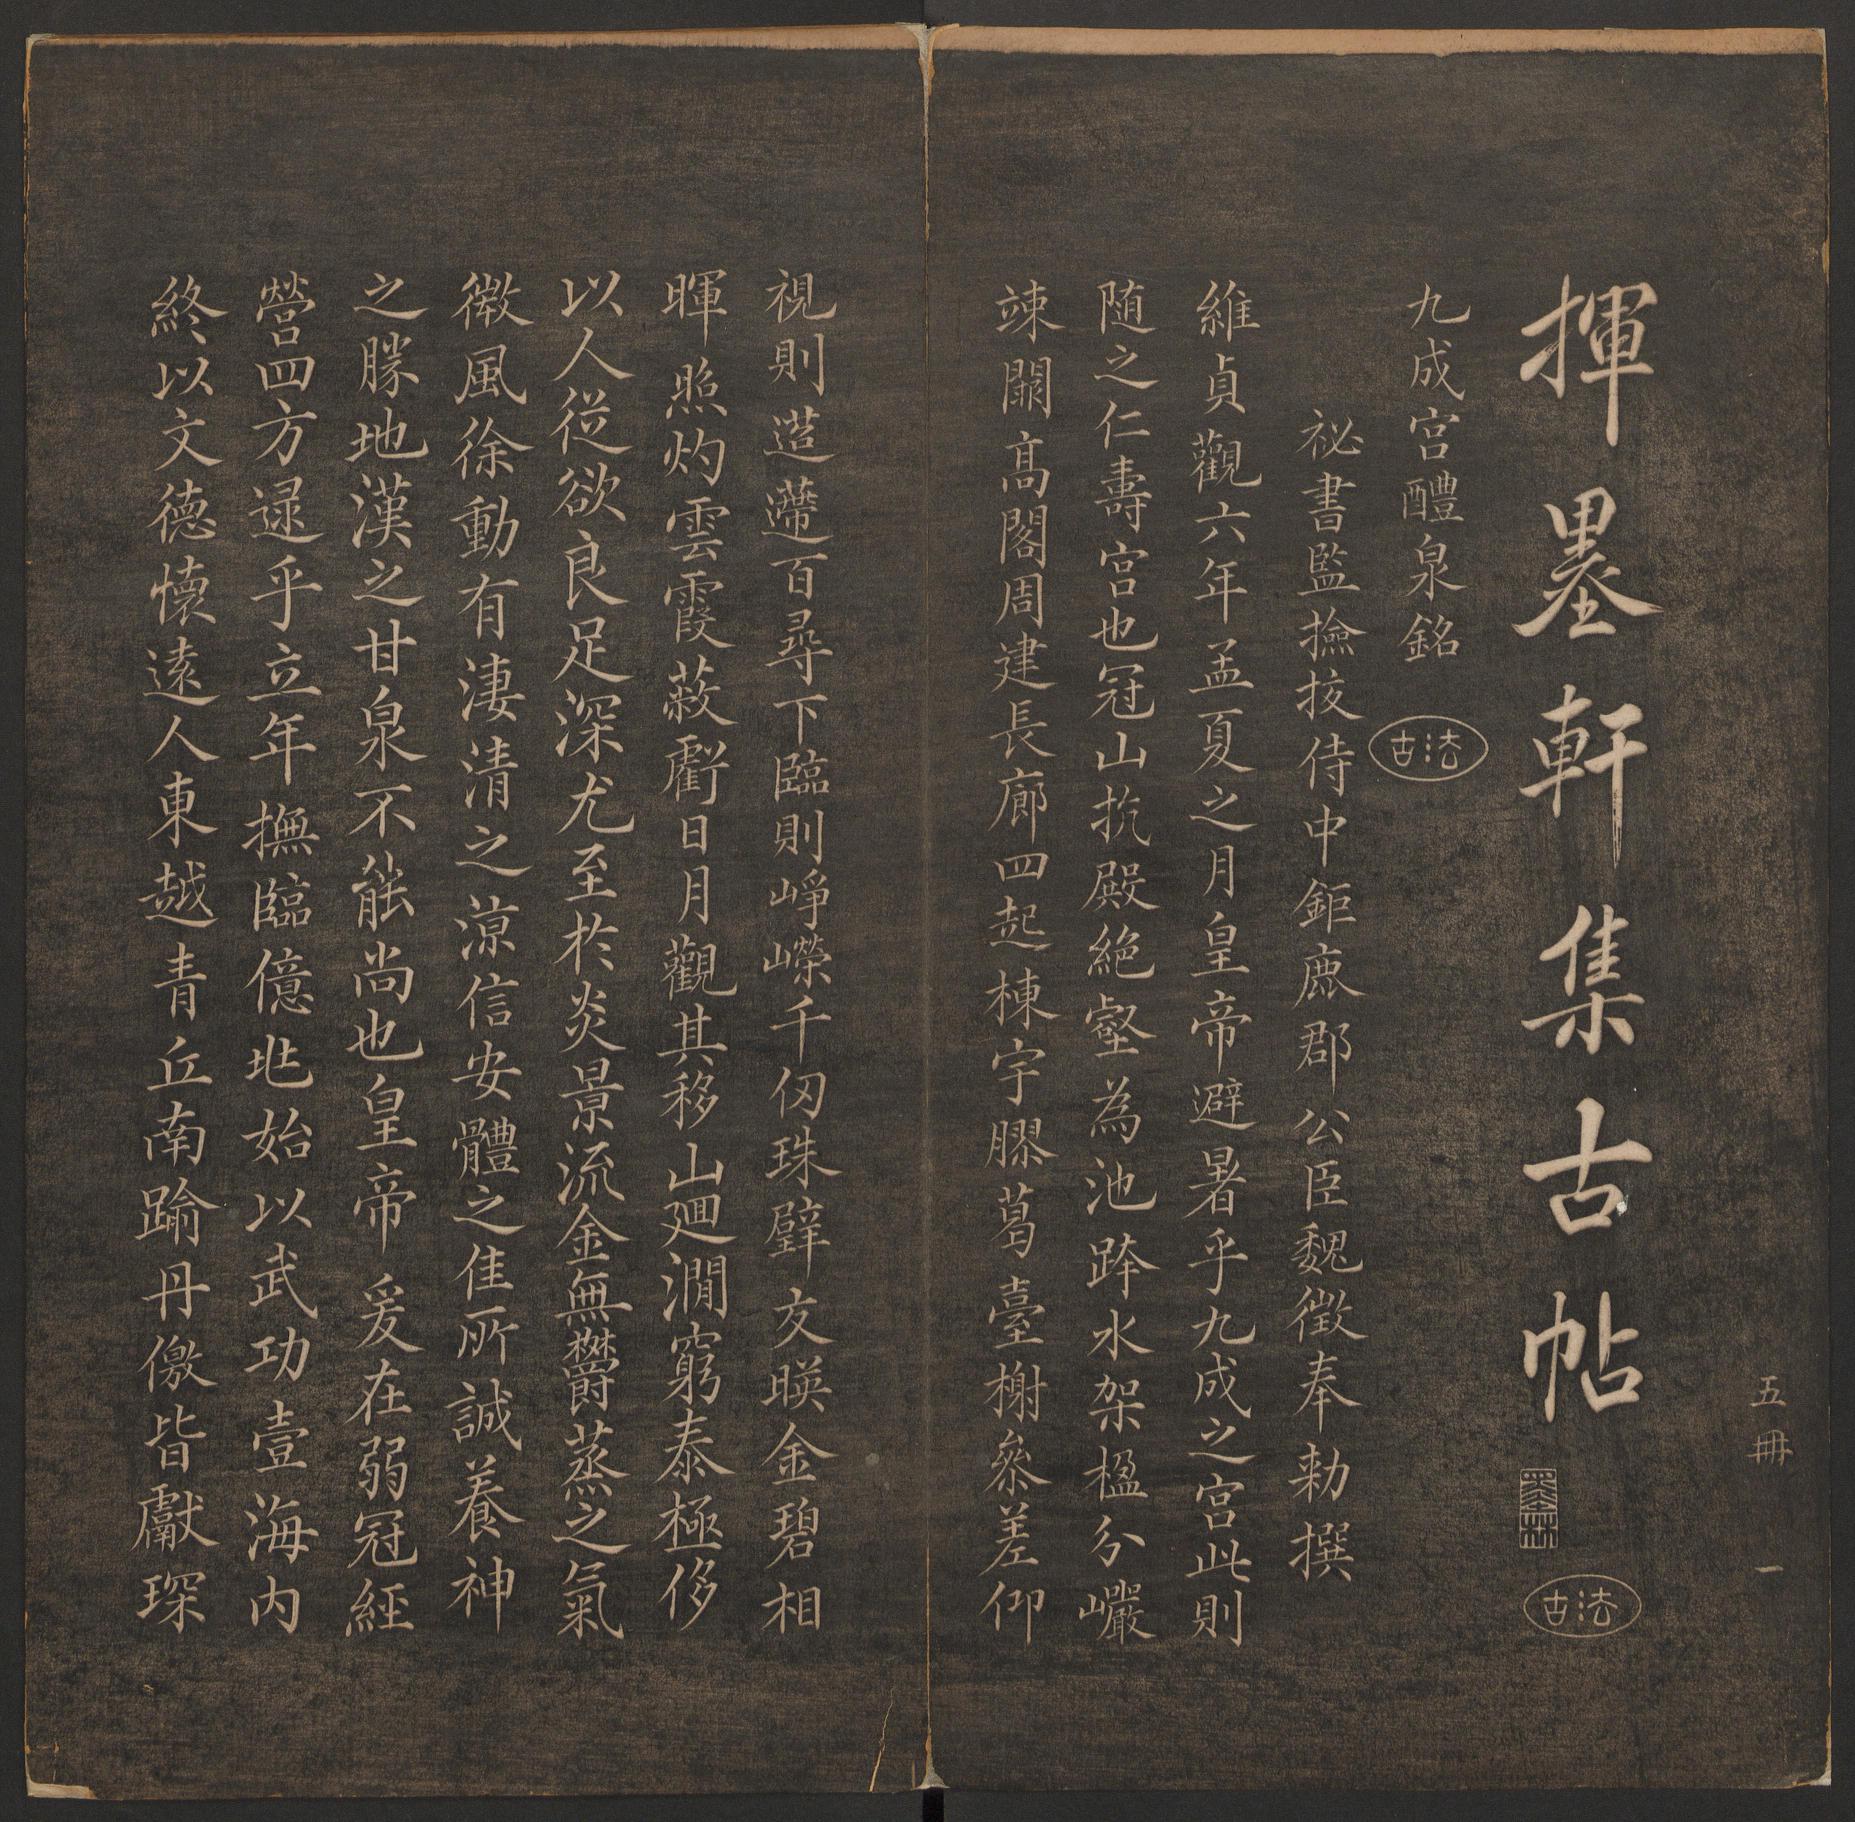 五冊 一
揮墨軒集古帖
古法
九成宮醴泉銘
古法
祕書監撿挍侍中鉅鹿郡公臣魏徵奉勅撰
維貞觀六年孟夏之月皇帝避暑乎九成之宮此則
随之仁壽宮也冠山抗殿絶壑為池跨水架楹分巖
竦闕高閣周建長廊四起棟宇膠葛臺榭參差仰
視則迢遰百尋下臨則崢嶸千仞珠璧交暎金碧相
暉照灼雲霞蔽虧日月觀其移山廻澗窮泰極侈
以人從欲良足深尤至於炎景流金無欝蒸之氣
微風徐動有淒清之涼信安體之佳所誠養神
之勝地漢之甘泉不能尚也皇帝爰在弱冠經
營四方逯乎立年撫臨億兆始以武功壹海內
終以文德懷遠人東越青丘南踰丹儌皆獻琛